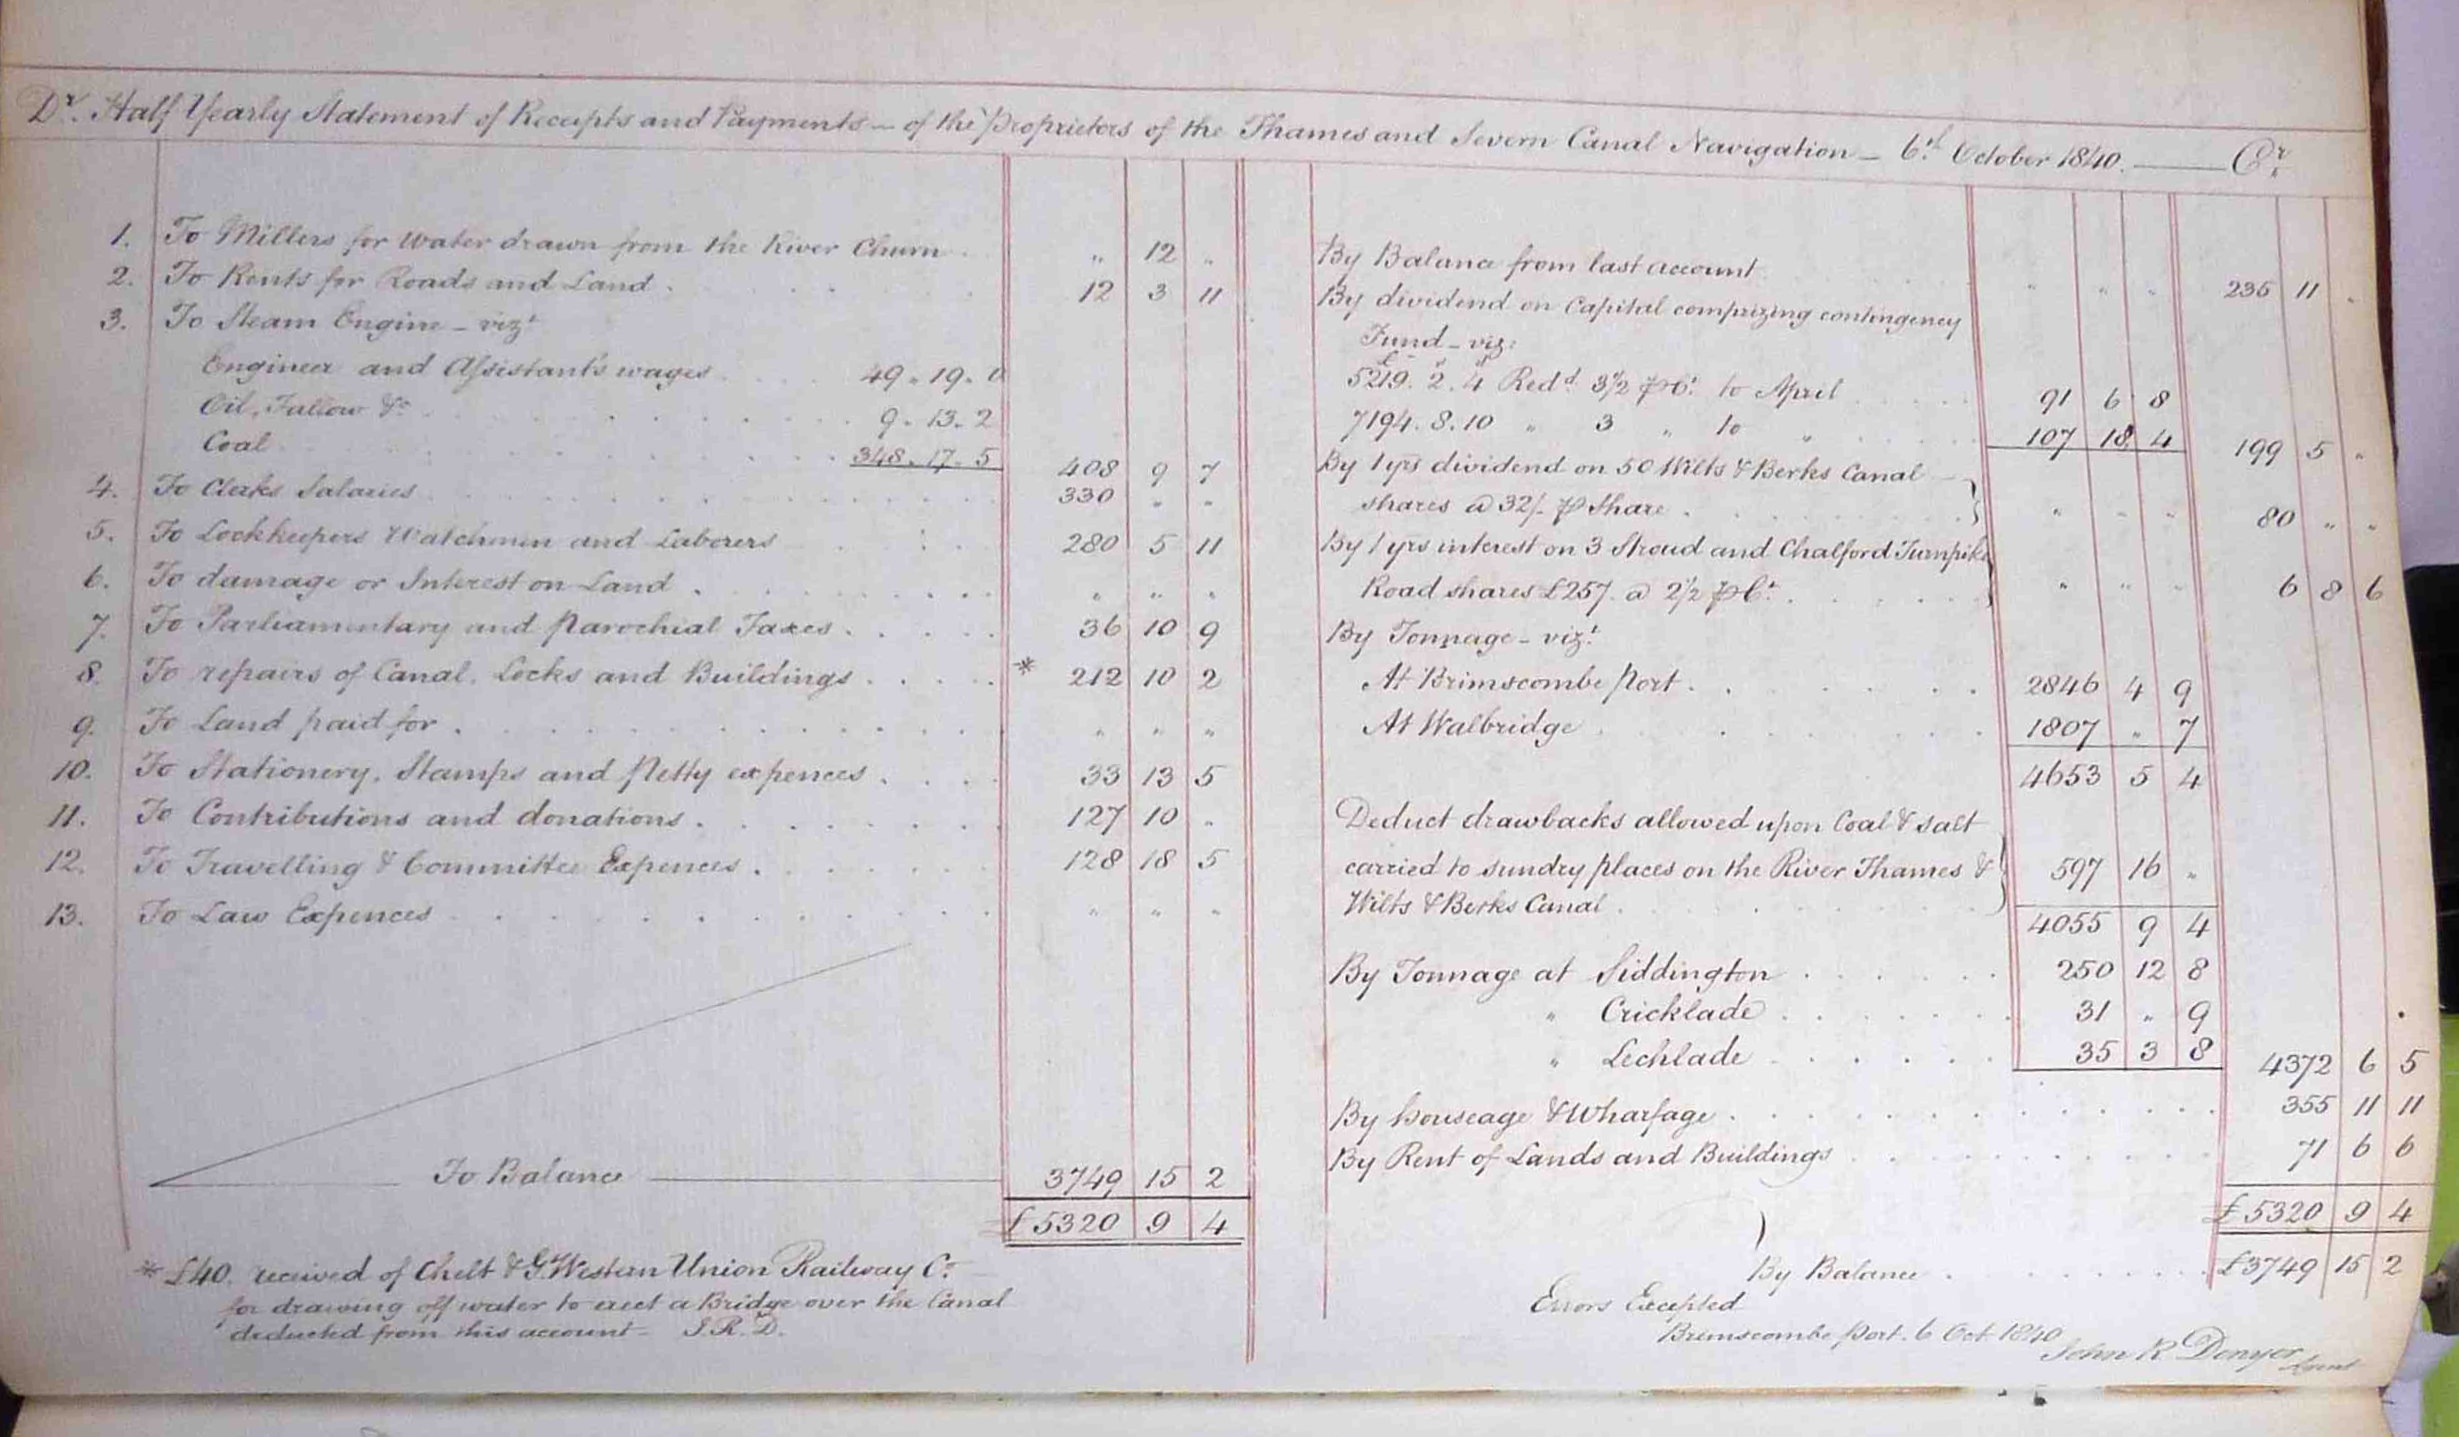 Dr. Half Yearly Statement of Receipts and Payments – of the Proprietors of the Thames and Severn Canal Navigation – 6th October 1840. Cr.
1. To Millers for Water drawn from the River Churn . „ 12 „
2. To Rents for Roads and Land . 12 3 11
3. To Steam Engine – vizt
Engineer and Assistant's wages 49 . 19 . 0
Oil, Tallow &c 9 . 13 . 2
Coal 348 . 17 . 5 408 9 7
4. To Clerks Salaries 330 „ „
5. To Lockkeepers Watchmen and Laborers 280 5 11
6. To damage or Interest on Land . „ „ „
7. To Parliamentary and Parochial Taxes . 36 10 9
8. To repairs of Canal, Locks and Buildings . * 212 10 2
9. To Land paid for . „ „ „
10. To Stationery, Stamps and Petty expences . 33 13 5
11. To Contributions and donations . 127 10 „
12. To Travelling & Committee Expences . 128 18 5
13. To Law Expences „ „ „
To Balance 3749 15 2
£5320 9 4
* £40. received of Chelt & Gt. Western Union Railway Co.
for drawing off water to erect a Bridge over the Canal
deducted from this account – J. R. D.
By Balance from last account „ „ „ 235 11 „
By dividend on Capital comprizing contingency
Fund – viz:
£ s d
5219. 2. 4 Redd 3½ p Ct. to April 91 6 8
7194. 8. 10 „ 3 „ to „ 107 18 4 199 5 „
By 1 yrs dividend on 50 Wilts & Berks Canal
shares @ 32/- p Share . „ „ „ 80 „ „
By 1 yrs interest on 3 Stroud and Chalford Turnpike
Road shares £257. @ 2½ p Ct. . „ „ „ 6 8 6
By Tonnage – vizt
At Brimscombe Port . 2846 4 9
At Walbridge 1807 „ 7
4653 5 4
Deduct drawbacks allowed upon Coal & Salt
carried to sundry places on the River Thames & 597 16 „
Wilts & Berks Canal .
4055 9 4
By Tonnage at Siddington 250 12 8
„ Cricklade 31 „ 9
„ Lechlade 35 3 8 4372 6 5
By houseage & Wharfage . 355 11 11
By Rent of Lands and Buildings 71 6 6
£5320 9 4
By Balance . £3749 15 2
Errors Excepted
Brimscombe Port. 6 Oct 1840
John R Denyer